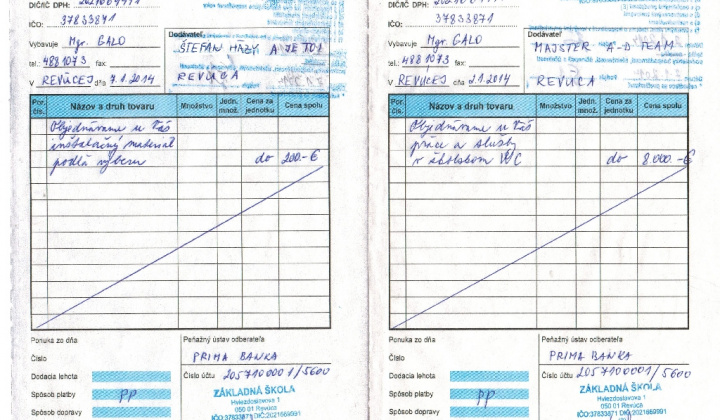 DIČ/IČ DPH:
IČO: 37833871
Vybavuje Mgr. GALO
Dodávateľ:
ŠTEFAN HÁZY A JE TO!
tel.: 488 1073 fax.
V REVÚCEJ dňa 7.1.2014
REVÚCA
Por. čís. Názov a druh tovaru Množstvo Jedn. množ. Cena za jednotku Cena spolu
Objednávame u Vás
inštalačný materiál
podľa výberu do 200.-€
Ponuka zo dňa
Peňažný ústav odberateľa
Číslo
PRIMA BANKA
Dodacia lehota
Číslo účtu 2057100001/5600
Spôsob platby PP
ZÁKLADNÁ ŠKOLA
Hviezdoslavova 1
050 01 Revúca
Spôsob dopravy
IČO:37833871 DIČ:2021669991
DIČ/IČ DPH:
IČO: 37833871
Vybavuje Mgr. GALO
Dodávateľ
MAJSTER A-D TEAM
tel.: 488 1073 fax.
V REVÚCEJ dňa 2.1.2014
REVÚCA
Por. čís. Názov a druh tovaru Množstvo Jedn. množ. Cena za jednotku Cena spolu
Objednávame u Vás
práce a služby
v školskom WC do 8 000.-€
Ponuka zo dňa
Peňažný ústav odberateľa
Číslo
PRIMA BANKA
Dodacia lehota
Číslo účtu 2057100001/5600
Spôsob platby PP
ZÁKLADNÁ ŠKOLA
Hviezdoslavova 1
050 01 Revúca
Spôsob dopravy
IČO:37833871 DIČ:2021669991